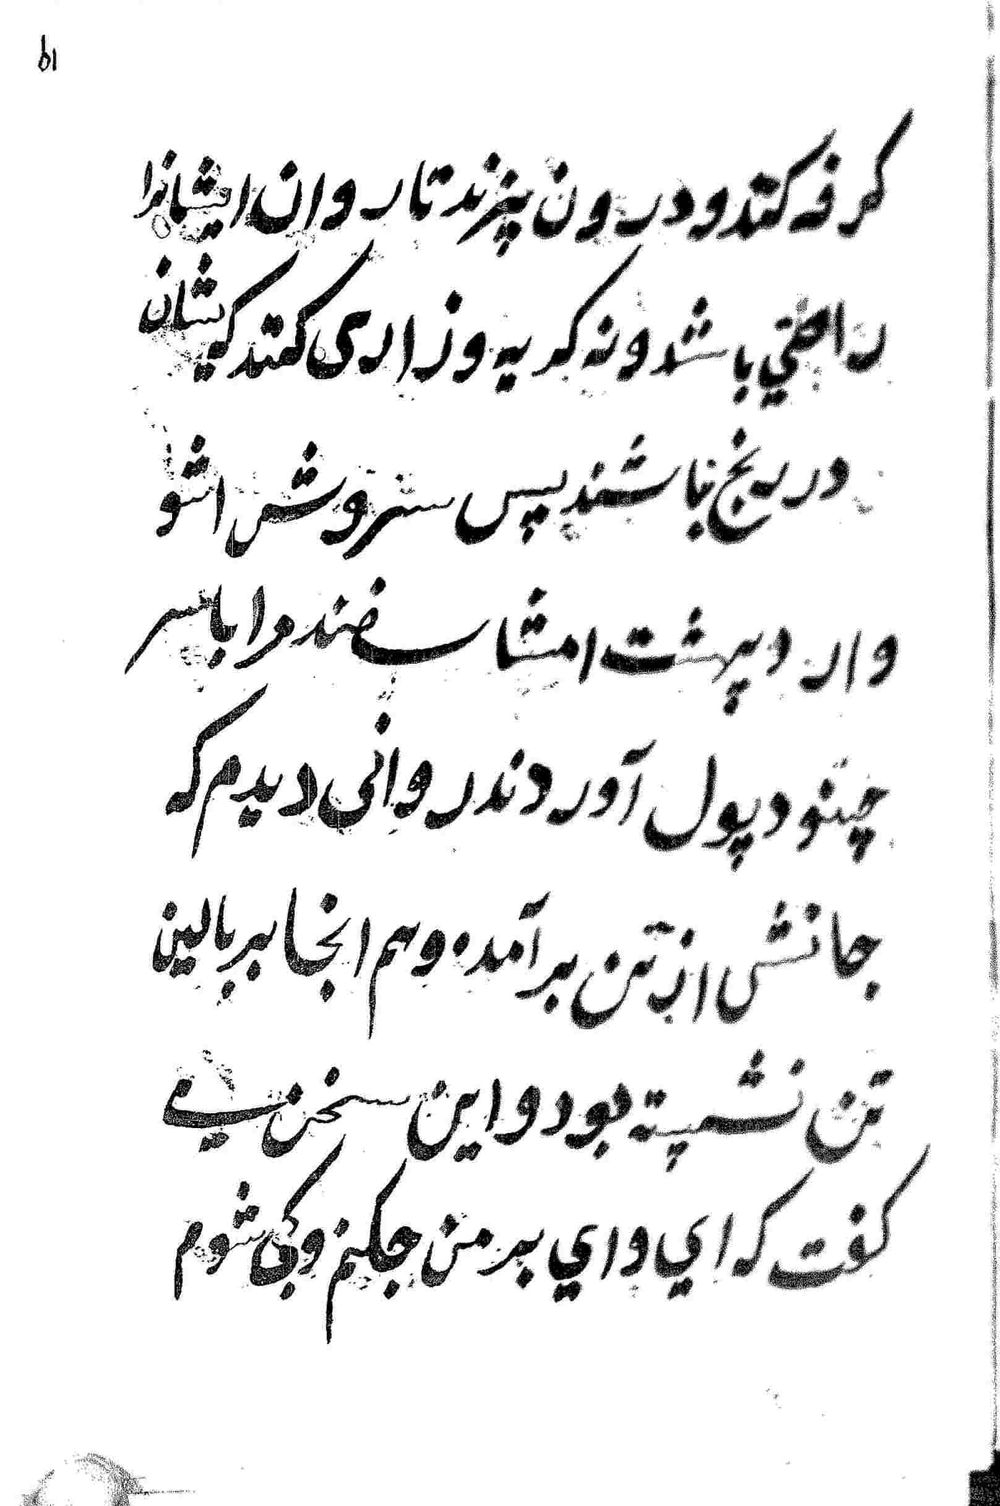 ۱۵
کرفه کنند و درون یزند تا روان ایشانرا
راحتي باشد و نه کریه و زاری کنند که ایشان
در رنج باشند پس سروش اشو
و اردیبهشت امشاسفند مرا بر سر
چینود پول آوردند روانی دیدم که
جانش از تن برآمده و هم انجا بر بالین
تن نشسته بود و این سخن مے
کفت که اي واي بر من جکنم و کجا شوم